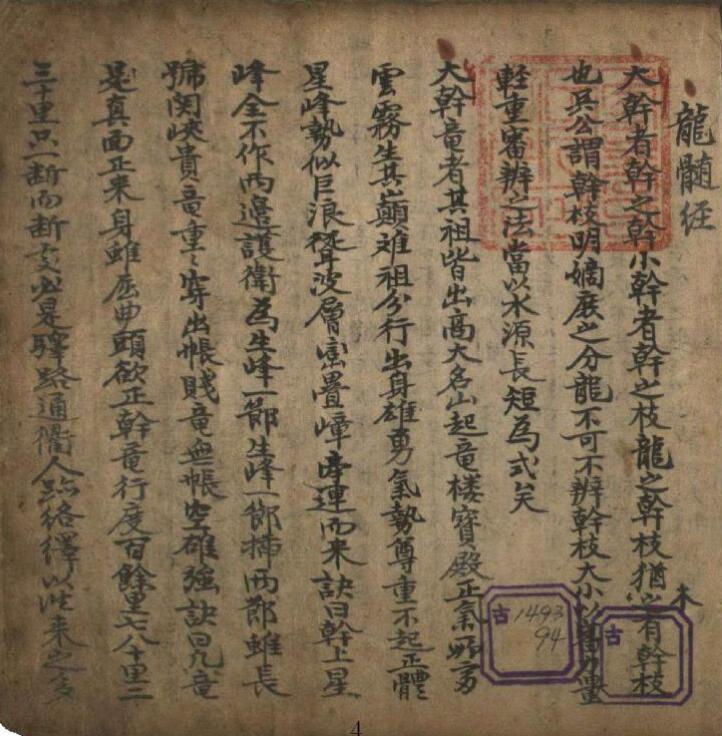 龍髓经
大幹者幹之幹小幹者幹之枝龍之幹枝猶木之有幹枝
也吳公謂幹枝明嫡庶之分龍不可不辨幹枝大小以 力量
軽重審辨之法當以水源長短為式矣
大幹竜者其祖皆出高大名山起竜楼寳殿正氣 多
雲霧生其巔难祖分行出身雄勇氣勢尊重不起正體
星峰勢似巨浪聳波層巒疊嶂 連而来訣曰幹上星
峰全不作兩邊護衛為生峰一節生峰一節揷两節雖長
號関峽貴竜重〻穿出帳賤竜無帳空雄強訣曰凢竜
是真面正来身雖屈曲頭欲正幹竜行度百餘里七八十里二
三十里只一断而断処必是驛路通衢人跡絡繹以徃来之多
古 1493 94
古
4